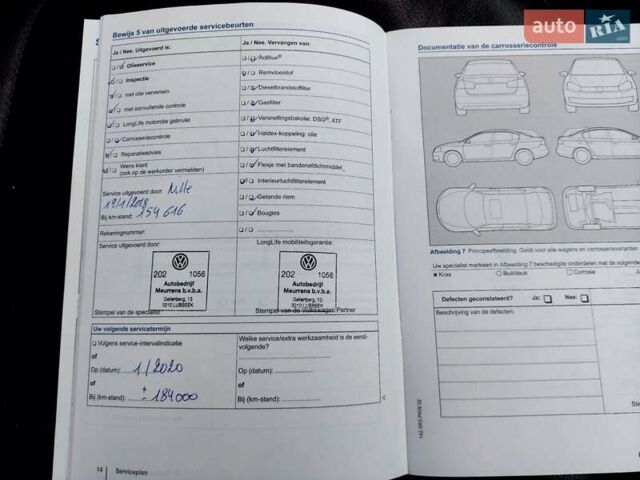 auto RIA.com
Bewijs 5 van uitgevoerde servicebeurten
Ja / Nee. Uitgevoerd is:
Ja / Nee. Vervangen van:
Olieservice
Inspectie
met olie verversen
met aanvullende controle
LongLife motorolie gebruikt
Carrosseriecontrole
Reparatieadvies
Wens klant
(ook op de werkorder vermelden)
AdBlue®
Remvloeistof
Dieselbrandstoffilter
Gasfilter
Versnellingsbakolie: DSG®, ATF
Haldex-koppeling: olie
Luchtfilterelement
Flesje met bandenafdichtmiddel
Interieurluchtfilterelement
Getande riem
Bougies
Service uitgevoerd door:
19/1/2018
Bij km-stand: 154 616
Rekeningnummer:
Service uitgevoerd door:
LongLife mobiliteitsgarantie:
202 1056
Autobedrijf
Meurrens b.v.b.a.
Gellenberg, 13
3210 LUBBEEK
202 1056
Autobedrijf
Meurrens b.v.b.a.
Gellenberg, 13
3210 LUBBEEK
Stempel van de specialist
Stempel van de Volkswagen Partner
Uw volgende servicetermijn
Volgens service-intervalindicatie
of
Op (datum): 1/2020
of
Bij (km-stand): ± 184000
Welke service/extra werkzaamheid is de eerst-
volgende?
Op (datum):
Bij (km-stand):
14 Serviceplan
Documentatie van de carrosseriecontrole
Afbeelding 7 Principeafbeelding. Geldt voor alle wagens en carrosserievarianten
Uw specialist markeert in Afbeelding 7 beschadigde onderdelen met de volgende
Kras
Buil/deuk
Corrosie
Defecten geconstateerd? Ja: Nee:
Beschrijving van de defecten:
142.5R3.PKW.32